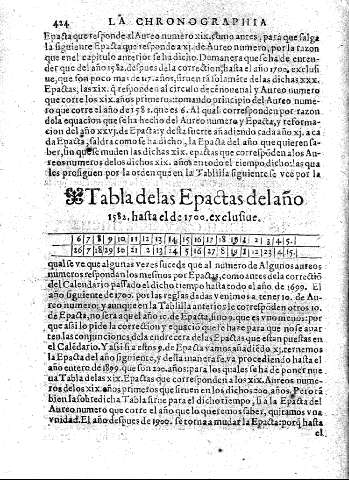 424 LA CHRONOGRAPHIA
Epacta que responde al Aureo numero xix. como antes, para que salga
la siguiente Epacta que responde a xj. de Aureo numero, por la razon
que en el capitulo anterior se ha dicho. Domanera que se ha de enten-
der que del año 1582. despues dela correction, hasta el año 1700. exclusi-
ue, que son poco mas de 117. años, siruen tã solamẽte delas dichas xxx.
Epactas, las xix. q̃ responden al circulo decenouenal y Aureo numero
que corre los xix. años primero: tomando principio del Aureo nume-
ro que corre el año de 1582. que es 6. Al qual corresponden por razon
dela equacion que se ha hecho del Aureo numero y Epacta, y reforma-
cion del año xxvj. de Epacta: y desta suerte añadiendo cada año xj. a ca-
da Epacta, saldra como se ha dicho, la Epacta del año que quieren sa-
ber, sin que se muden las dichas xix. epactas que correspõden alos Au-
reos numeros delos dichos xix. años en todo el tiempo dicho: las qua
les prosiguen por la orden que en la Tablilla siguiente se vee por la
Tabla delas Epactas del año
1582. hasta el de 1700. exclusiue.
6 7 8 9 10 11 12 13 14 15 16 17 18 19 1 2 3 4 5
26 7 18 29 10 21 2 13 24 5 16 27 8 19 1 12 23 4 15
qual se vee que algunas vezes sucede que al numero de Algunos aureos
numeros respondan los mesmos por Epactas, como antes dela correctiõ
del Calendario passado el dicho tiempo hasta todo el año de 1699. El
año siguiente de 1700. por las reglas dadas venimos a tener 10. de Au-
reo numero, y aunque en la Tablilla anterior le corresponden otros 10.
de Epacta, no sera aquel año 10. de Epacta, sino 9. que es vno menos: por
que asi lo pide la correction y equaciõ que se haze para que no se apar-
ten las conjunctiones, dela endrecera delas Epactas que estan puestas en
el Calẽdario. Y assi si a estos 9. de Epacta vamos añadiẽdo xj. ternemos
la Epacta del año siguiente, y desta manera se va procediendo hasta el
año entero de 1899. que son 200. años: para los quales se ha de poner nue
ua Tabla delas xix. Epactas que corresponden a los xix. Aureos nume-
ros delos xix. años primeros que siruen en los dichos 200. años. Pero tã
bien la sobredicha Tabla sirue para el dicho tiempo, si a la Epacta del
Aureo numero que corre el año que lo queremos saber, quitamos vna
vnidad. El año despues de 1900. se torna a mudar la Epacta: porq̃ hasta
el